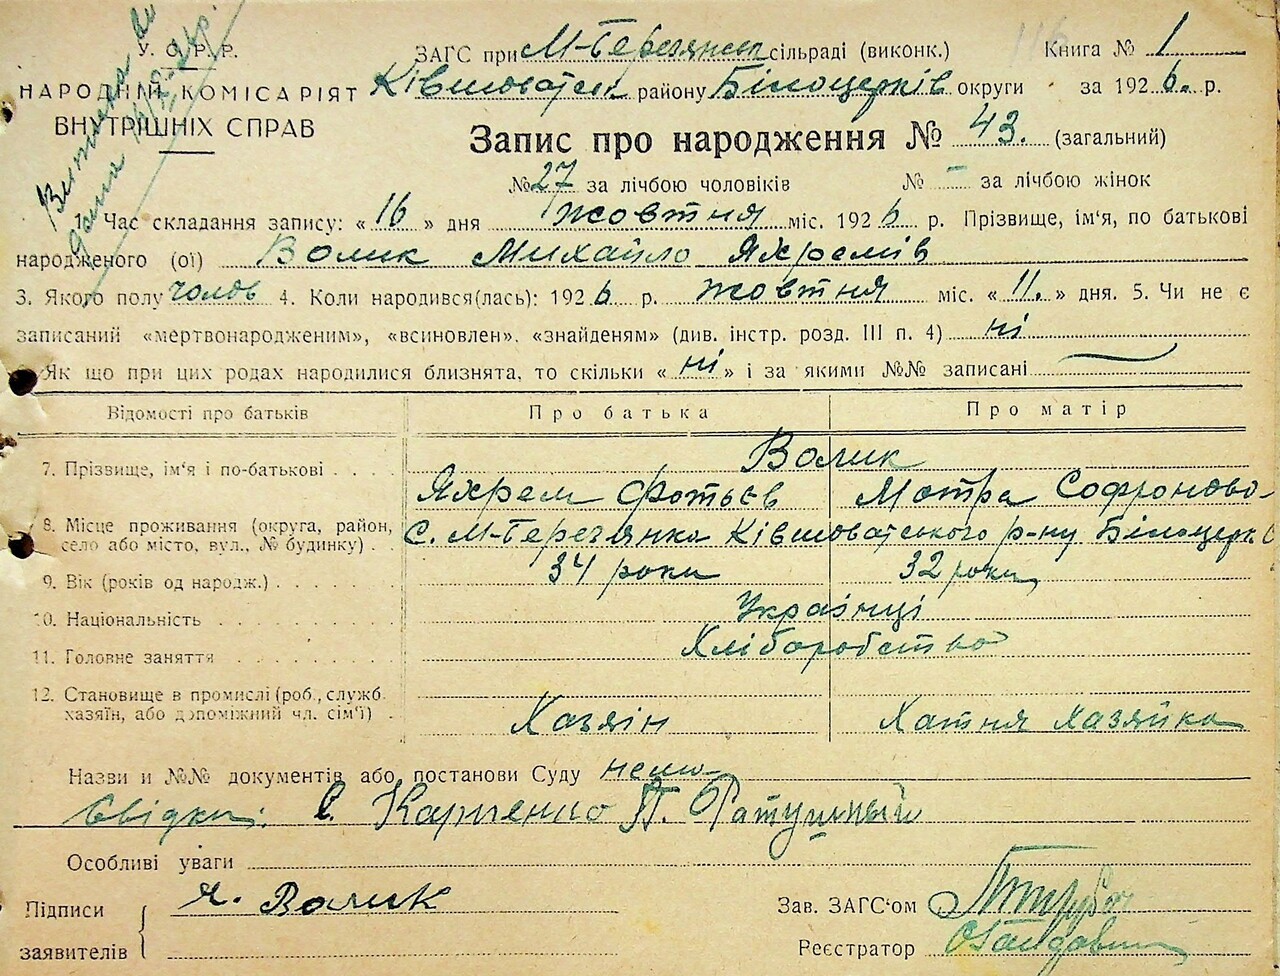 У. С. Р. Р.
НАРОДНІЙ КОМІСАРІЯТ
ВНУТРІШНІХ СПРАВ
Виписка
дана
116
ЗАГС при М-Березянськ сільраді (виконк.) Книга № 1
Ківшоватськ району Білоцерків округи за 1926. р.
Запис про народження № 43. (загальний)
№ 27 за лічбою чоловіків № - за лічбою жінок
1. Час складання запису: « 16 » дня жовтня міс. 1926 р. Прізвище, ім'я, по батькові
народженого (ої) Волик Михайло Яхремів
3. Якого полу чолов 4. Коли народився(лась): 1926 р. жовтня міс. « 11. » дня. 5. Чи не є
записаний «мертвонародженим», «всиновлен», «знайденям» (див. інстр. розд. III п. 4) ні
Як що при цих родах народилися близнята, то скільки « ні » і за якими №№ записані
Відомості про батьків Про батька Про матір
7. Прізвище, ім'я і по-батькові . . . Волик
Яхрем Фотьєв Мотря Софронова
8. Місце проживання (округа, район, село або місто, вул., № будинку) . С. М-Березянка Ківшоватського р-ну Білоцерк О
9. Вік (років од народж.) . . . . . 34 роки 32 роки
10. Національність . . . . . . . . Українці
11. Головне заняття . . . . . . . . Хліборобство
12. Становище в промислі (роб., служб. хазяїн, або допоміжний чл. сім'ї) . Хазяін Хатня хазяйка
Назви и №№ документів або постанови Суду нема
Свідки: Є. Карпенко П. Ратушный
Особливі уваги
Підписи заявителів Я. Волик
Зав. ЗАГС'ом
Реєстратор